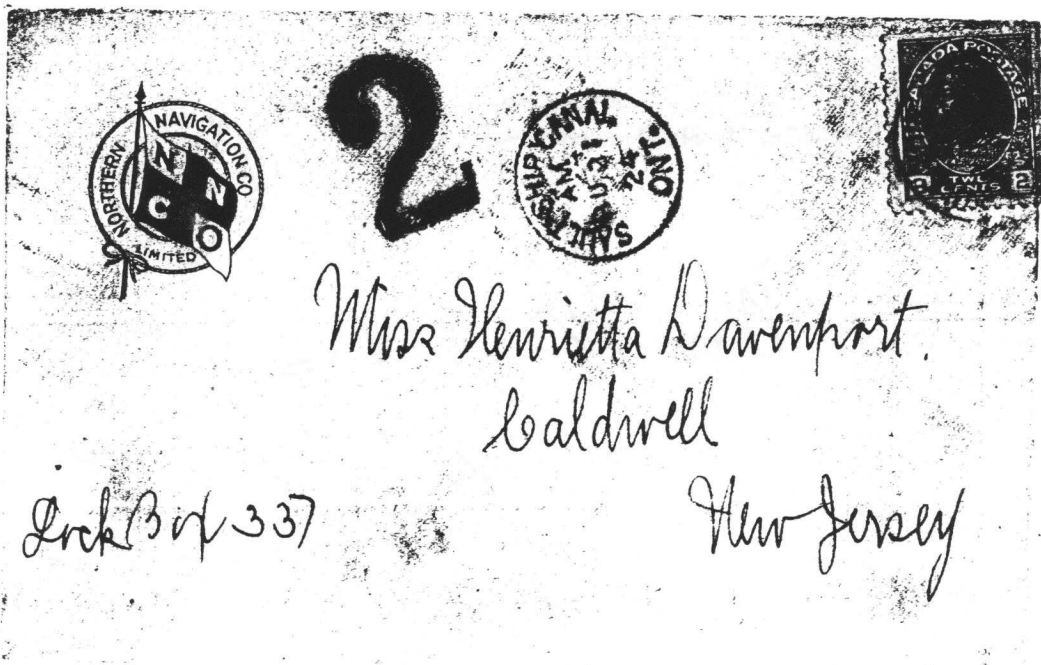 NORTHERN NAVIGATION CO
LIMITED
N N
C O
2
SAULT SHIP CANAL
ONT.
AM
31
24
CANADA POSTAGE
2 TWO CENTS 2
Miss Henrietta Davenport.
Caldwell
New Jersey
Lock Box 337